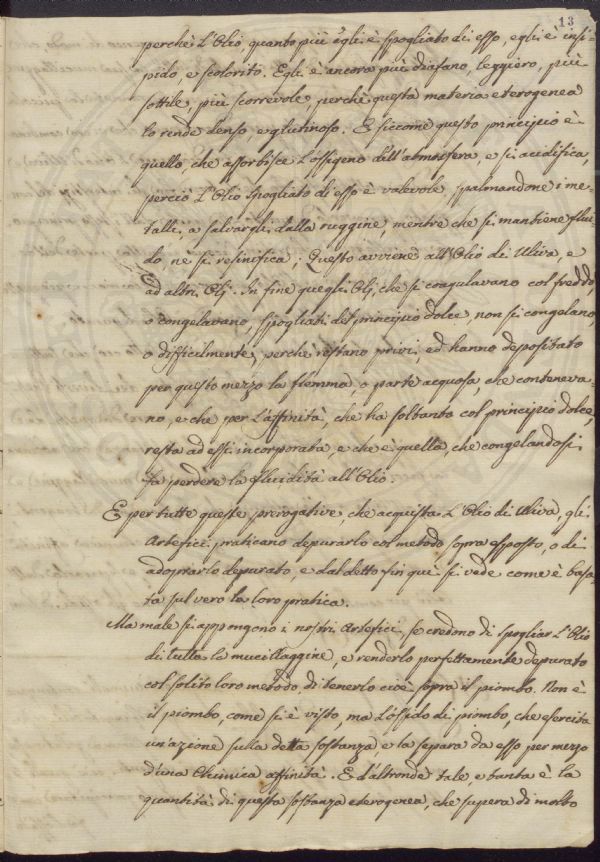 13
perchè L'Olio, quanto più egli è spogliato di esso, egli è insi-
pido, e scolorito. Egli è ancora più diafano, leggiero, più
sottile, più scorrevole, perchè questa materia eterogenea
lo rende denso, e glutinoso. E siccome questo principio è
quello, che assorbisce L'ossigeno dell'atmosfera, e si acidifica,
perciò L'Olio spogliato di esso è valevole, spalmandone i me-
talli, a salvargli dalla ruggine, mentre che si mantiene flui-
do nè si resinifica; Questo avviene all'Olio di Uliva, e
ad altri Olj. In fine quegli Olj, che si coagulavano col freddo,
o congelavano, spogliati del principio dolce, non si congelano,
o difficilmente, perchè restano privi, ed hanno depositato
per questo mezzo la flemma, o parte acquosa, che conteneva-
no, e che per L'affinità, che ha soltanto col principio dolce,
resta ad essi incorporata, e che è quella, che congelandosi
fa perdere la fluidità all'Olio.
E per tutte queste prerogative, che acquista L'Olio di Uliva, gli
Artefici praticano depurarlo col metodo sopra esposto, o di
adoprarlo depurato, e dal detto fin quì si vede come è basa-
ta sul vero la loro pratica.
Ma male si appongono i nostri Artefici, se credono di spogliar L'Olio
di tutta la mucillaggine, e renderlo perfettamente depurato
col solito loro metodo, di tenerlo cioè sopra il piombo. Non è
il piombo, come si è visto, ma L'ossido di piombo, che esercita
un'azione sulla detta sostanza e la separa da esso per mezzo
d'una Chimica affinità. E d'altronde tale, e tanta è la
quantità di questa sostanza eterogenea, che supera di molto